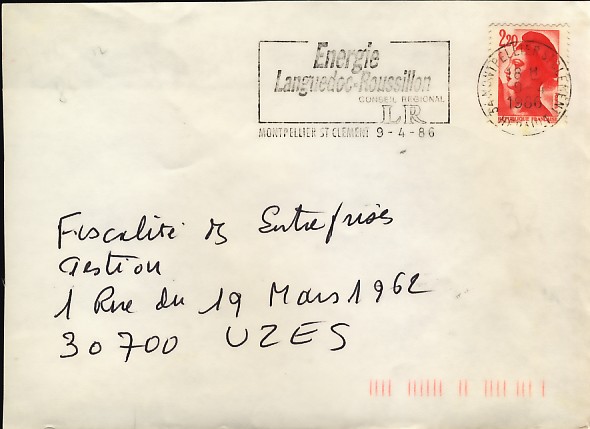 Energie
Languedoc-Roussillon
CONSEIL REGIONAL
LR
MONTPELLIER ST CLEMENT 9-4-86
2,20
1986
REPUBLIQUE FRANC
Fiscalité Entreprises
Gestion
1 Rue du 19 Mars 1962
30700 UZES